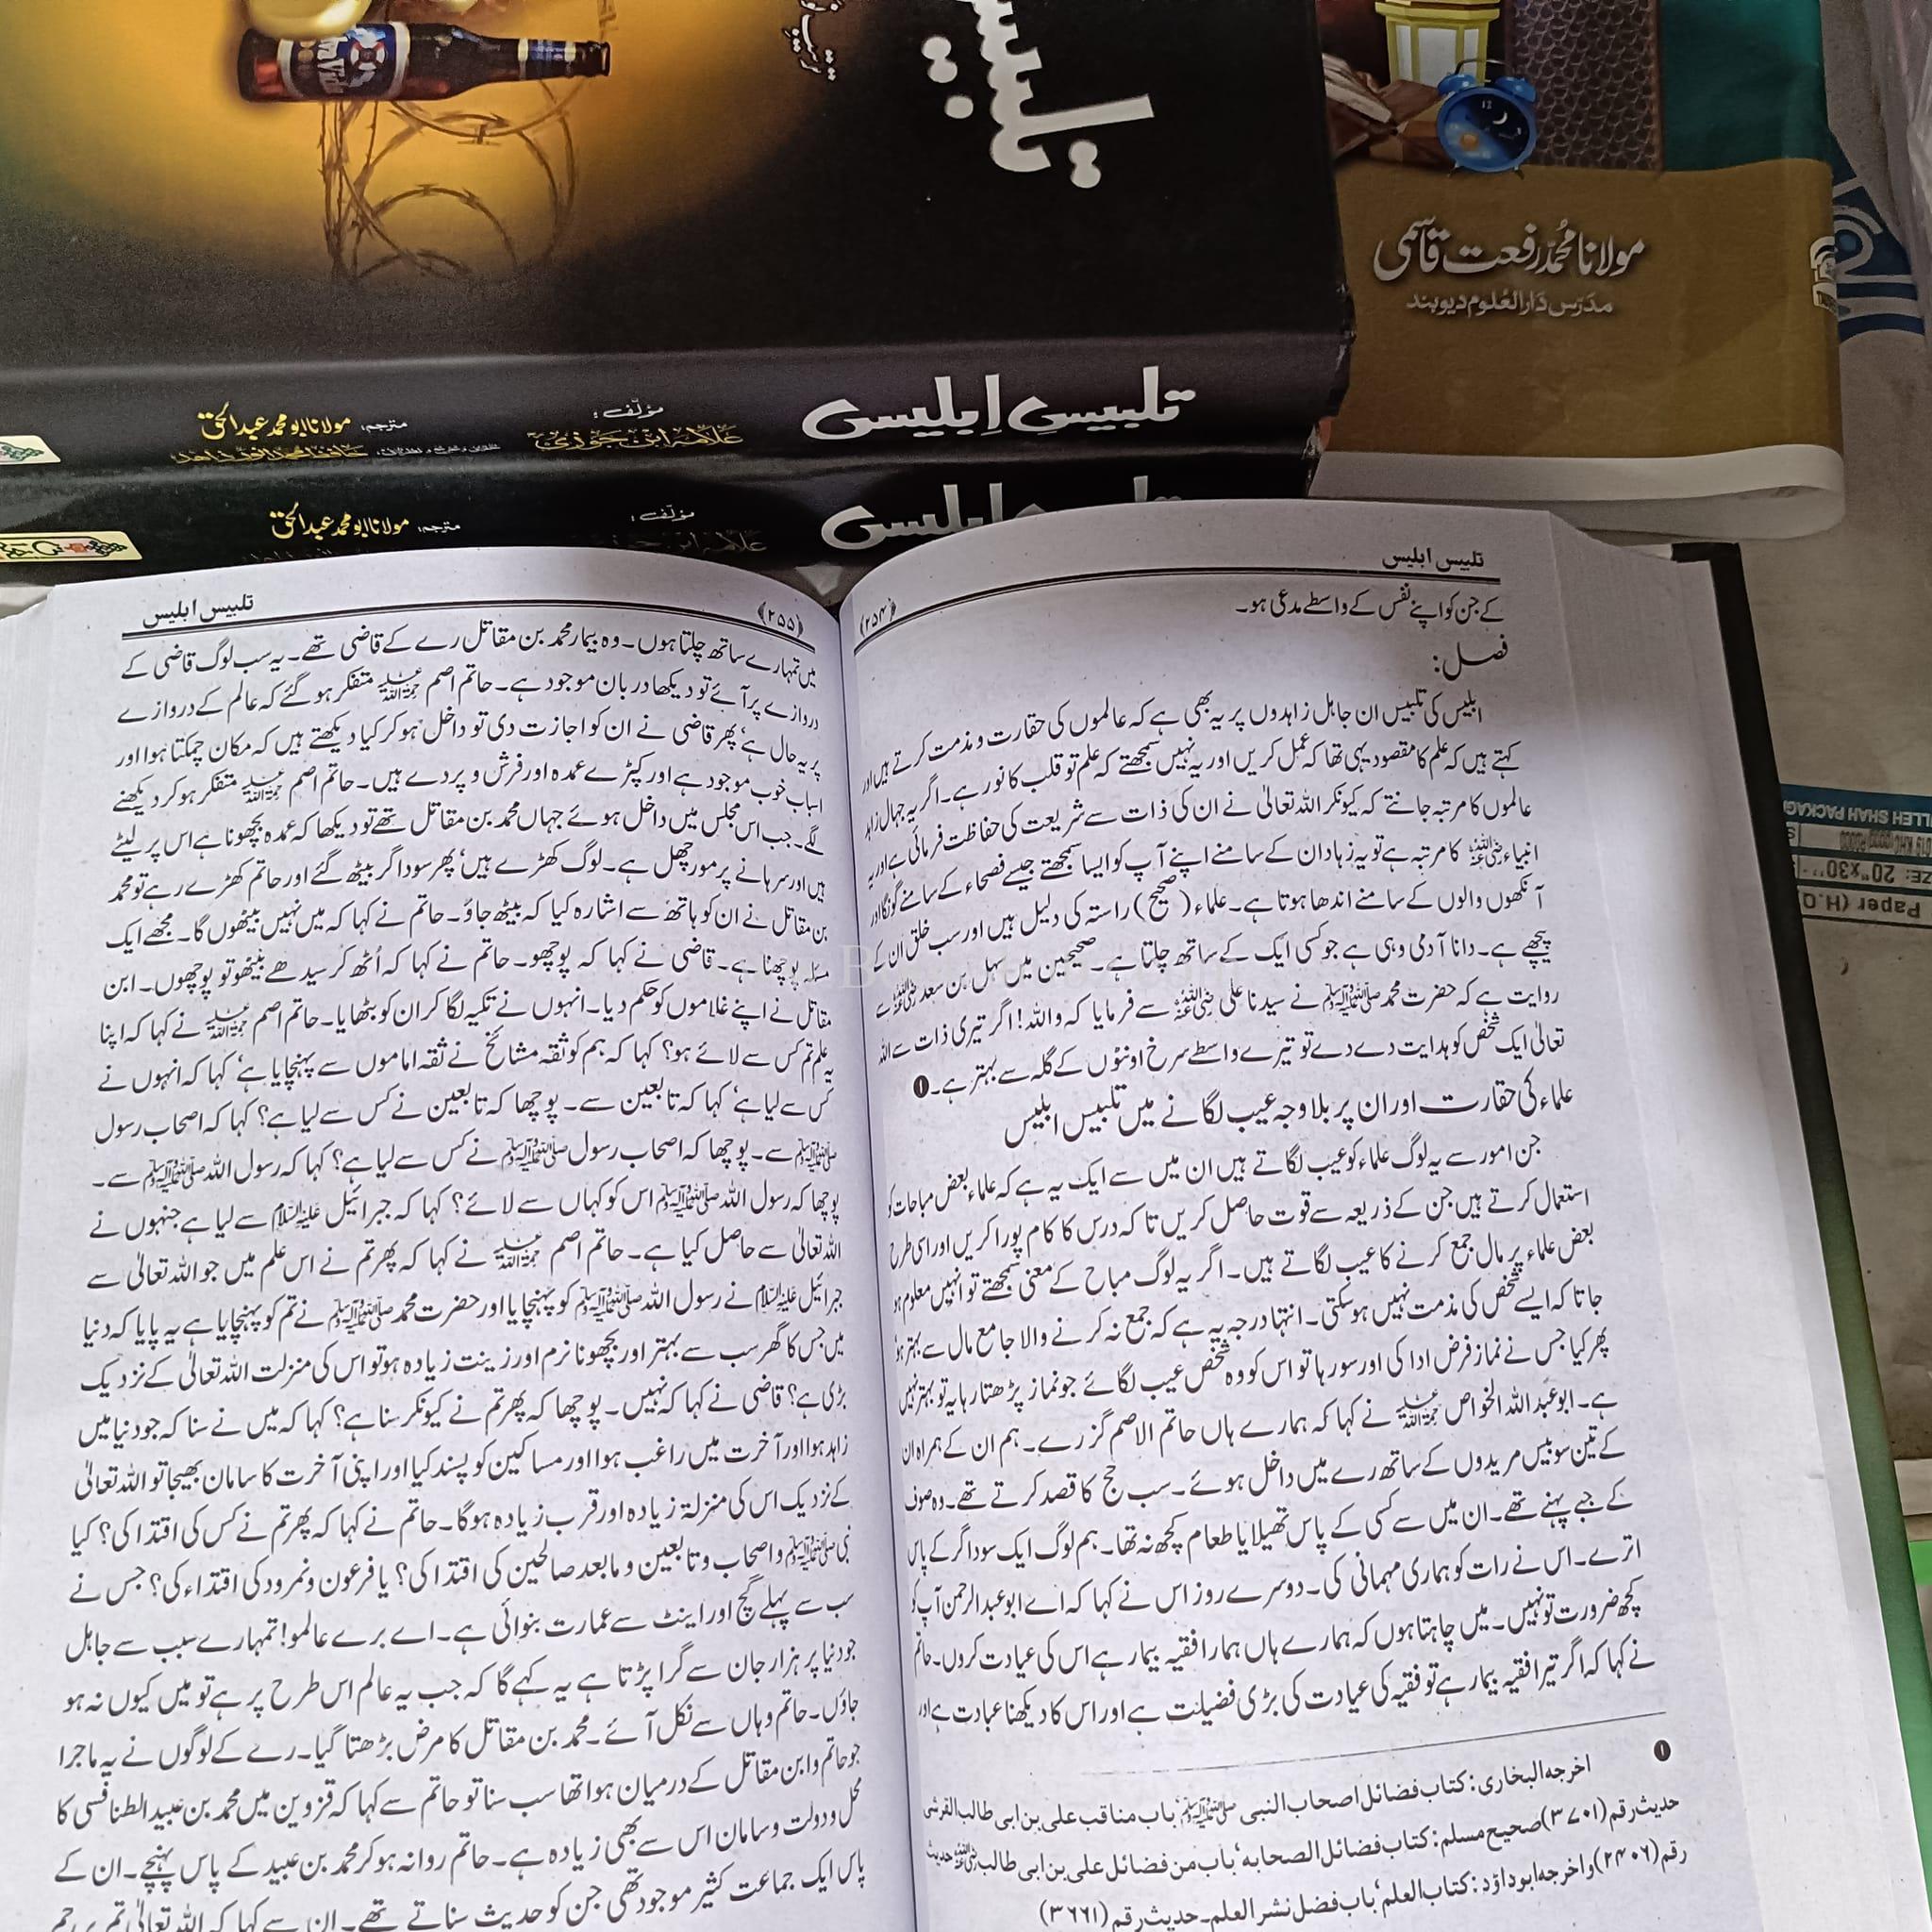 تلبیسِ اِبلیس
مؤلف:
علامہ ابن جوزی
مترجم: مولانا ابو محمد عبدالحق
مترجم: مولانا ابو محمد عبدالحق
مؤلف:
مولانا محمد رفعت قاسمی
مدرس دارالعلوم دیوبند
تلبیس ابلیس
﴿۲۵۴﴾
کے جن کو اپنے نفس کے واسطے مدعی ہو۔
فصل:
ابلیس کی تلبیس ان جاہل زاہدوں پر یہ بھی ہے کہ عالموں کی حقارت و مذمت کرتے ہیں اور
کہتے ہیں کہ علم کا مقصود یہی تھا کہ عمل کریں اور یہ نہیں سمجھتے کہ علم تو قلب کا نور ہے۔ اگر یہ جہال زاہد
عالموں کا مرتبہ جانتے کہ کیونکر اللہ تعالیٰ نے ان کی ذات سے شریعت کی حفاظت فرمائی ہے اور یہ
انبیاء کا مرتبہ ہے تو یہ زہاد ان کے سامنے اپنے آپ کو ایسا سمجھتے جیسے فصحاء کے سامنے گونگا اور
آنکھوں والوں کے سامنے اندھا ہوتا ہے۔ علماء (صحیح) راستہ کی دلیل ہیں اور سب خلق ان کے
پیچھے ہے۔ دانا آدمی وہی ہے جو کسی ایک کے ساتھ چلتا ہے۔ صحیحین میں سہل بن سعد رضی اللہ عنہ سے
روایت ہے کہ حضرت محمد ﷺ نے سیدنا علی رضی اللہ عنہ سے فرمایا کہ واللہ! اگر تیری ذات سے اللہ
تعالیٰ ایک شخص کو ہدایت دے دے تو تیرے واسطے سرخ اونٹوں کے گلہ سے بہتر ہے۔ ❶
علماء کی حقارت اور ان پر بلاوجہ عیب لگانے میں تلبیس ابلیس
جن امور سے یہ لوگ علماء کو عیب لگاتے ہیں ان میں سے ایک یہ ہے کہ علماء بعض مباحات کو
استعمال کرتے ہیں جن کے ذریعہ سے قوت حاصل کریں تاکہ درس کا کام پورا کریں اور اسی طرح
بعض علماء پر مال جمع کرنے کا عیب لگاتے ہیں۔ اگر یہ لوگ مباح کے معنی سمجھتے تو انہیں معلوم ہو
جاتا کہ ایسے شخص کی مذمت نہیں ہو سکتی۔ انتہا درجہ یہ ہے کہ جمع نہ کرنے والا جامع مال سے بہتر ہو
پھر کیا جس نے نماز فرض ادا کی اور سو رہا تو اس کو وہ شخص عیب لگائے جو نماز پڑھتا رہا یہ تو بہتر نہیں
ہے۔ ابو عبداللہ الخواص رحمۃ اللہ علیہ نے کہا کہ ہمارے ہاں حاتم الاصم گزرے۔ ہم ان کے ہمراہ ان
کے تین سو بیس مریدوں کے ساتھ رے میں داخل ہوئے۔ سب حج کا قصد کرتے تھے۔ وہ صوف
کے جبے پہنے تھے۔ ان میں سے کسی کے پاس تھیلا یا طعام کچھ نہ تھا۔ ہم لوگ ایک سوداگر کے پاس
اترے۔ اس نے رات کو ہماری مہمانی کی۔ دوسرے روز اس نے کہا کہ اے ابو عبدالرحمن آپ کو
کچھ ضرورت تو نہیں۔ میں چاہتا ہوں کہ ہمارے ہاں ہمارا فقیہ بیمار ہے اس کی عیادت کروں۔ حاتم
نے کہا کہ اگر تیرا فقیہ بیمار ہے تو فقیہ کی عیادت کی بڑی فضیلت ہے اور اس کا دیکھنا عبادت ہے اور
❶ اخرجہ البخاری: کتاب فضائل اصحاب النبی ﷺ باب مناقب علی بن ابی طالب القرشی
حدیث رقم (۳۷۰۱) صحیح مسلم: کتاب فضائل الصحابہ، باب من فضائل علی بن ابی طالب رضی اللہ عنہ حدیث
رقم (۲۴۰۶) و اخرجہ ابوداؤد: کتاب العلم، باب فضل نشر العلم۔ حدیث رقم (۳۶۶۱)
تلبیس ابلیس
﴿۲۵۵﴾
میں تمہارے ساتھ چلتا ہوں۔ وہ بیمار محمد بن مقاتل رے کے قاضی تھے۔ یہ سب لوگ قاضی کے
دروازے پر آئے تو دیکھا دربان موجود ہے۔ حاتم اصم رحمۃ اللہ علیہ متفکر ہو گئے کہ عالم کے دروازے
پر یہ حال ہے، پھر قاضی نے ان کو اجازت دی تو داخل ہو کر کیا دیکھتے ہیں کہ مکان چمکتا ہوا اور
اسباب خوب موجود ہے اور کپڑے عمدہ اور فرش و پردے ہیں۔ حاتم اصم رحمۃ اللہ علیہ متفکر ہو کر دیکھنے
لگے۔ جب اس مجلس میں داخل ہوئے جہاں محمد بن مقاتل تھے تو دیکھا کہ عمدہ بچھونا ہے اس پر لیٹے
ہیں اور سرہانے پر مورچھل ہے۔ لوگ کھڑے ہیں، پھر سوداگر بیٹھ گئے اور حاتم کھڑے رہے تو محمد
بن مقاتل نے ان کو ہاتھ سے اشارہ کیا کہ بیٹھ جاؤ۔ حاتم نے کہا کہ میں نہیں بیٹھوں گا۔ مجھے ایک
مسئلہ پوچھنا ہے۔ قاضی نے کہا کہ پوچھو۔ حاتم نے کہا کہ اُٹھ کر سیدھے بیٹھو تو پوچھوں۔ ابن
مقاتل نے اپنے غلاموں کو حکم دیا۔ انہوں نے تکیہ لگا کر ان کو بٹھایا۔ حاتم اصم رحمۃ اللہ علیہ نے کہا کہ اپنا
یہ علم تم کس سے لائے ہو؟ کہا کہ ہم کو ثقہ مشائخ نے ثقہ اماموں سے پہنچایا ہے، کہا کہ انہوں نے
کس سے لیا ہے، کہا کہ تابعین سے۔ پوچھا کہ تابعین نے کس سے لیا ہے؟ کہا کہ اصحاب رسول
ﷺ سے۔ پوچھا کہ اصحاب رسول ﷺ نے کس سے لیا ہے؟ کہا کہ رسول اللہ ﷺ سے۔
پوچھا کہ رسول اللہ ﷺ اس کو کہاں سے لائے؟ کہا کہ جبرائیل علیہ السلام سے لیا ہے جنہوں نے
اللہ تعالیٰ سے حاصل کیا ہے۔ حاتم اصم رحمۃ اللہ علیہ نے کہا کہ پھر تم نے اس علم میں جو اللہ تعالیٰ سے
جبرائیل علیہ السلام نے رسول اللہ ﷺ کو پہنچایا اور حضرت محمد ﷺ نے تم کو پہنچایا ہے یہ پایا کہ دنیا
میں جس کا گھر سب سے بہتر اور بچھونا نرم اور زینت زیادہ ہو تو اس کی منزلت اللہ تعالیٰ کے نزدیک
بڑی ہے؟ قاضی نے کہا کہ نہیں۔ پوچھا کہ پھر تم نے کیونکر سنا ہے؟ کہا کہ میں نے سنا کہ جو دنیا میں
زاہد ہوا اور آخرت میں راغب ہوا اور مساکین کو پسند کیا اور اپنی آخرت کا سامان بھیجا تو اللہ تعالیٰ
کے نزدیک اس کی منزلۃ زیادہ اور قرب زیادہ ہوگا۔ حاتم نے کہا کہ پھر تم نے کس کی اقتدا کی؟ کیا
نبی ﷺ و اصحاب و تابعین و مابعد صالحین کی اقتدا کی؟ یا فرعون و نمرود کی اقتداء کی؟ جس نے
سب سے پہلے گچ اور اینٹ سے عمارت بنوائی ہے۔ اے برے عالمو! تمہارے سبب سے جاہل
جو دنیا پر ہزار جان سے گرا پڑتا ہے یہ کہے گا کہ جب یہ عالم اس طرح پر ہے تو میں کیوں نہ ہو
جاؤں۔ حاتم وہاں سے نکل آئے۔ محمد بن مقاتل کا مرض بڑھتا گیا۔ رے کے لوگوں نے یہ ماجرا
جو حاتم و ابن مقاتل کے درمیان ہوا تھا سب سنا تو حاتم سے کہا کہ قزوین میں محمد بن عبید الطنافسی کا
محل و دولت و سامان اس سے بھی زیادہ ہے۔ حاتم روانہ ہو کر محمد بن عبید کے پاس پہنچے۔ ان کے
پاس ایک جماعت کثیر موجود تھی جن کو حدیث سناتے تھے۔ ان سے کہا کہ اللہ تعالیٰ تم پر رحم